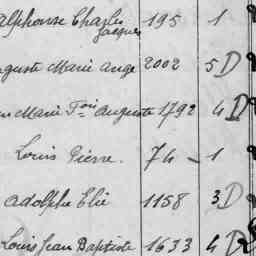 Alphonse Charles 195 1
Jacques
Auguste Marie Ange 2002 5 D
Marie Fçois Auguste 1792 4 D
Louis Pierre. 74 - 1
Adolphe Elie 1158 3 D
Louis Jean Baptiste 1633 4 D